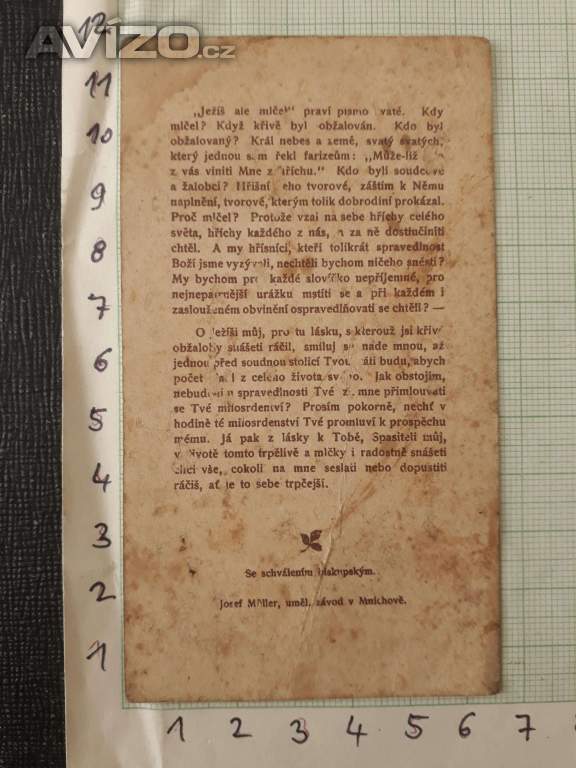 AVÍZO.cz
12
11
10
9
8
7
6
5
4
3
2
1
„Ježíš ale mlčel“ praví písmo svaté. Kdy
mlčel? Když křivě byl obžalován. Kdo byl
obžalovaný? Král nebes a země, svatý svatých,
který jednou sám řekl farizeům: „Může-liž
z vás viniti Mne z hříchu.“ Kdo byli soudcové
a žalobci? Hříšní Jeho tvorové, záštím k Němu
naplnění, tvorové, kterým tolik dobrodiní prokázal.
Proč mlčel? Protože vzal na sebe hříchy celého
světa, hříchy každého z nás, a za ně dostiučiniti
chtěl. A my hřísníci, kteří tolikrát spravedlnost
Boží jsme vyzývali, nechtěli bychom ničeho snésti?
My bychom pro každé slovíčko nepříjemné, pro
nejnepatrnější urážku mstíti se a při každém i
zaslouženém obvinění ospravedlňovati se chtěli? —
O Ježíši můj, pro tu lásku, s kterouž jsi křivé
obžaloby snášeti ráčil, smiluj se nade mnou, až
jednou před soudnou stolicí Tvou státi budu, abych
počet z celého života svého. Jak obstojím,
nebude-li u spravedlnosti Tvé za mne přimlouvati
se Tvé milosrdenství? Prosím pokorně, nechť v
hodině té milosrdenství Tvé promluví k prospěchu
mému. Já pak z lásky k Tobě, Spasiteli můj,
v životě tomto trpělivě a mlčky i radostně snášeti
chci vše, cokoli na mne seslati nebo dopustiti
ráčíš, ať je to sebe trpčejší.
Se schválením biskupským.
Josef Müller, uměl. závod v Mnichově.
1 2 3 4 5 6 7